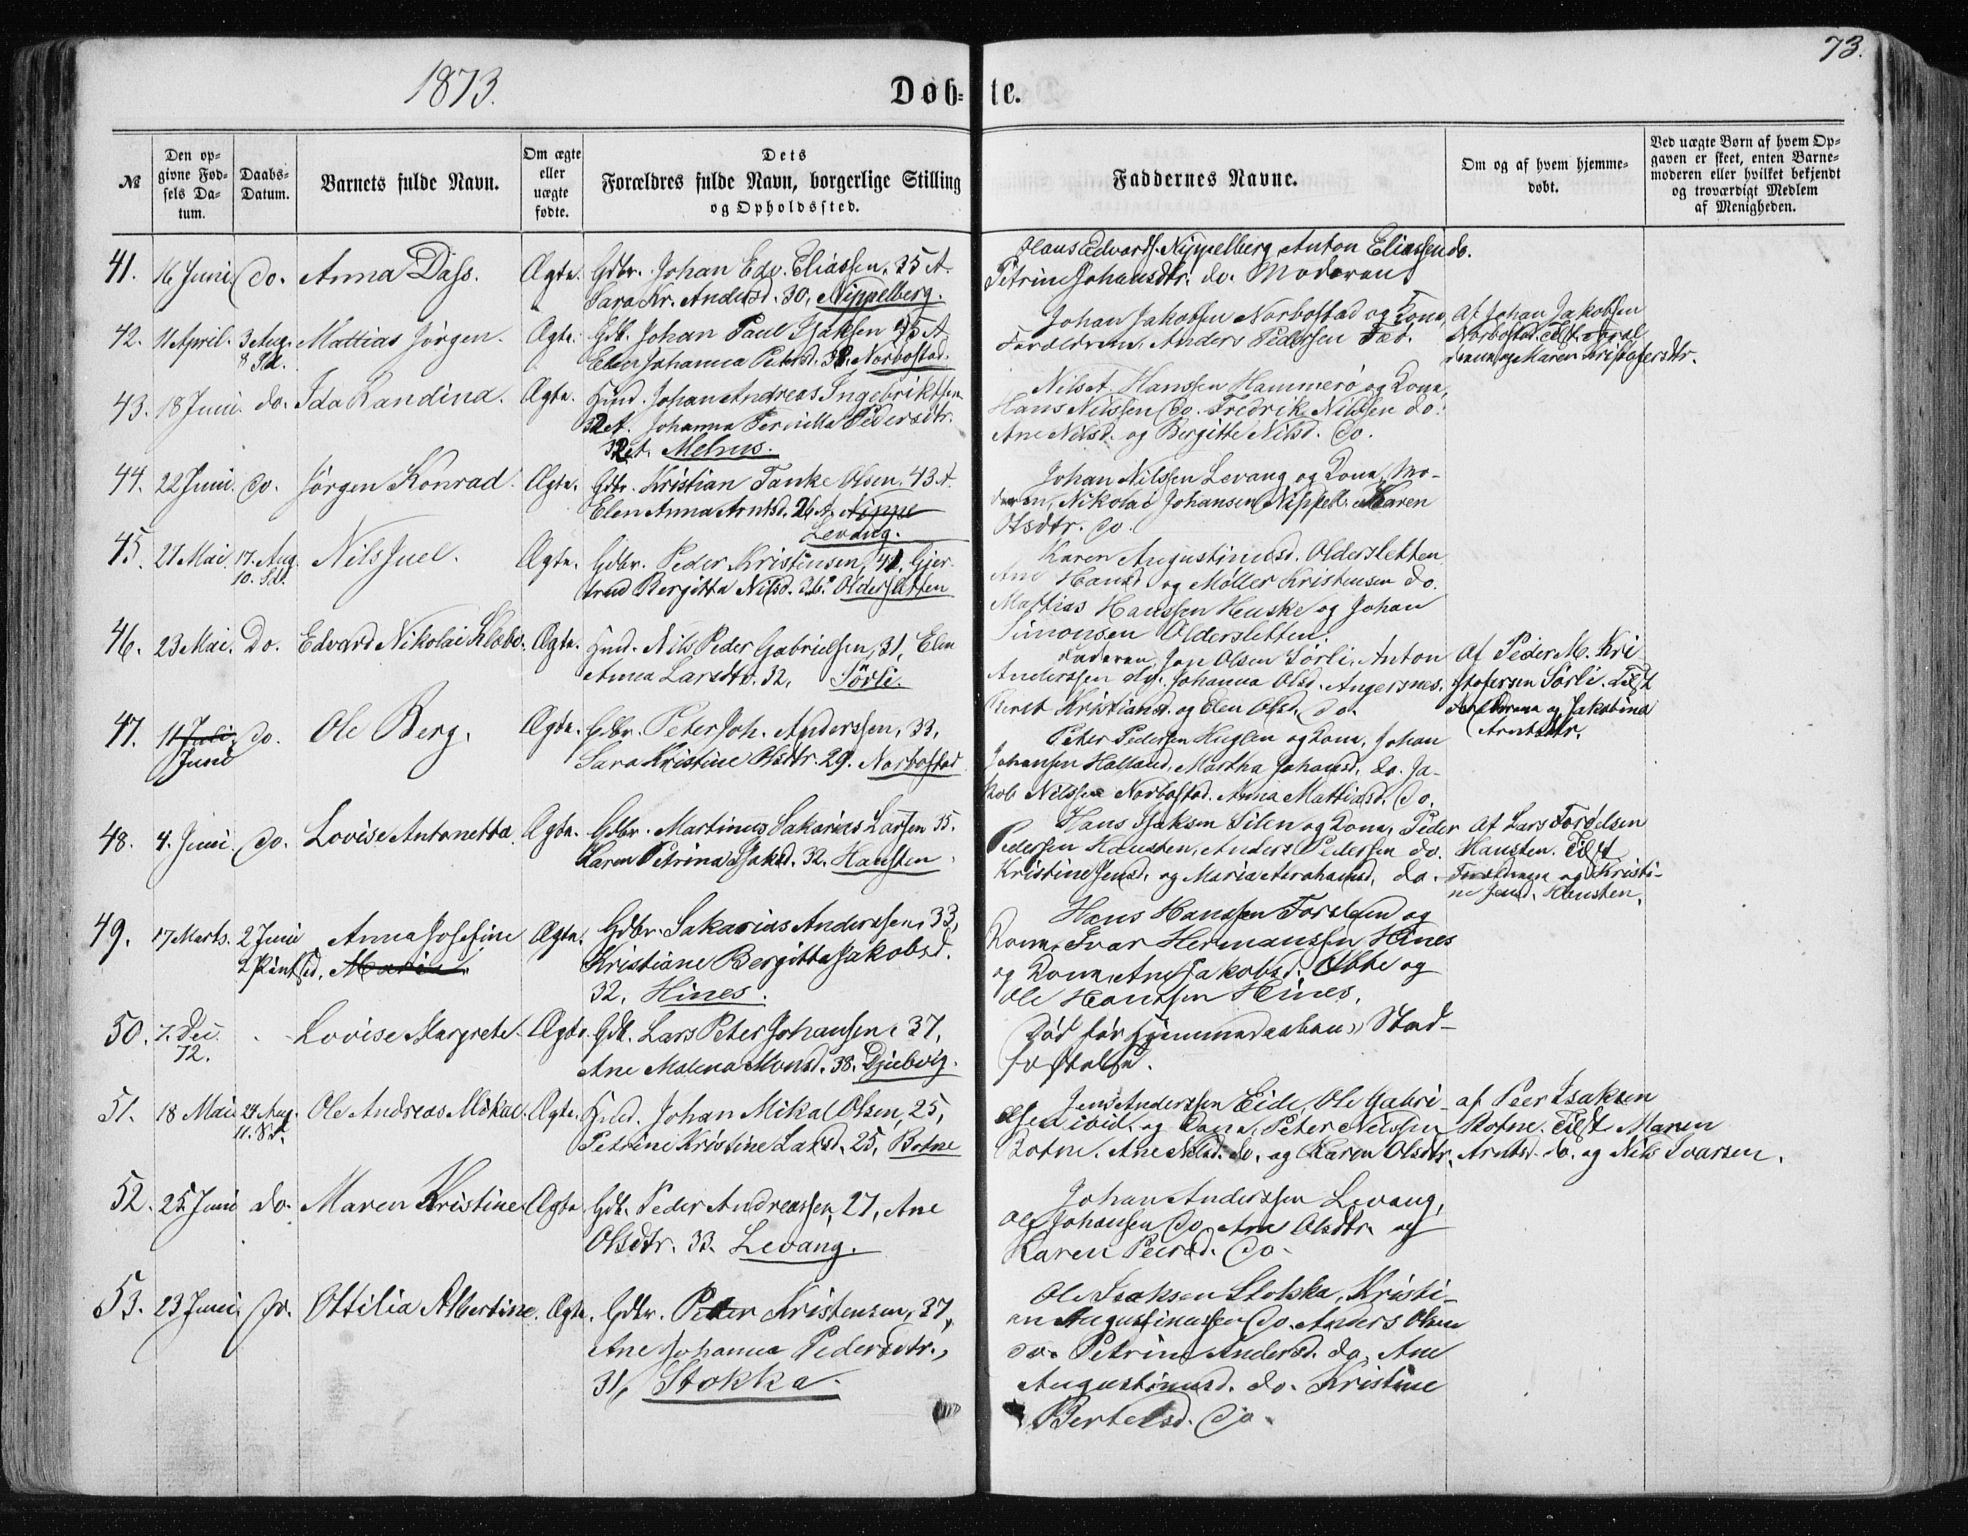 73.
1873.
Døb- te.
№
Den op-
givne Fød-
sels Da-
tum.
Daabs-
Datum.
Barnets fulde Navn.
Om ægte
eller
uægte
fødte.
Dets
Forældres fulde Navn, borgerlige Stilling
og Opholdssted.
Faddernes Navne.
Om og af hvem hjemme-
døbt.
Ved uægte Børn af hvem Op-
gaven er skeet, enten Barne-
moderen eller hvilket bekjendt
og troværdigt Medlem
af Menigheden.
41. 16 Juni do. Anna Dass. Ægte. Gdbr. Johan Edv. Eliassen, 35 A.
Sara Kr. Andersd. 30, Nippelberg.
Olaus Edvards. Nippelberg Anton Eliassen do.
Petrine Johansdtr. do. Moderen
42. 11 April. 3 Aug.
8 Sd.
Mattias Jørgen. Ægte. Gdb. Johan Paul Isaksen 45 A
Elen Johanna Petersd. 38, Norbostad.
Johan Jakobsen Norbostad og Kona,
Forældrene, Anders Pedersen Fæt.
Af Johan Jakobsen
Norbostad. Tilst. Foræl
drene og Maren Kristofersdtr.
43. 18 Juni do. Ida Randina. Ægte. Hmd. Johan Andreas Ingebriktsen
32 A. Johanna Pernilla Pedersdtr.
32 A. Melnus.
Nils A. Hanssen Hammerø og Kona,
Hans Nilssen do. Fredrik Nilssen do.
Ane Nilsd. og Bergitte Nilsd. do.
44. 22 Juni. do. Jørgen Konrad. Ægte. Gdbr. Kristian Tanke Olsen. 43 A.
Elen Anna Arntsd. 26 A. Nippe
Levang.
Johan Nilssen Levang og Kona, Mo-
deren, Nikolai Johansen Nippelb. Maren
Olsdtr. do.
45. 21 Mai 17. Aug.
10. Sd.
Nils Juel. Ægte. Gdbr. Peder Kristensen, 41, Gjer-
trud Bergitta Nilsd. 26. Oldersletten
Karen Augustinusd. Oldersletten
Ane Hansd og Møller Kristensen do.
Mattias Hanssen Heuske og Johan
Simonsen Oldersletten.
46. 23 Mai. Do. Edvard Nikolai Klæbo. Ægte. Hmd. Nils Peder Gabrielsen, 31, Elen
Anna Larsdtr. 32, Sörli.
Faderen, Jon Olsen Sörli, Anton
Anderssen do, Johanna Olsd. Angersnes.
Bernt Kristiansd. og Elen Olsd. do.
Af Peder M. Kri
stofersen Sörli. Tilst
Forældrene og Jakobina
Arntsdtr.
47. 11 Juli
Juni
do. Ole Berg. Ægte. Gdbr. Peter Joh. Anderssen, 33,
Sara Kristine Olsdtr. 29. Norbostad
Peter Pedersen Huglen og Kona, Johan
Johansen Holland, Martha Johansd. do. Ja-
kob Nilssen Norbostad. Anna Mattiasd. do.
48. 4. Juni. do. Lovise Antonetta. Ægte. Gdbr. Martinus Sakarias Larsen 35.
Karen Petrina Isaksd. 32. Hansten
Hans Isaksen Silen og Kona, Peder
Pedersen Hansten, Anders Pedersen do.
Kristine Jensd. og Maria Abrahamsd. do.
Af Lars Torølsen
Hansten. Tilst
Forældrene og Kristi-
ne Jensd. Hansten.
49. 17 Marts. 2 Juni
2 Pintsed.
Anna Josefine
Maria.
Ægte. Gdbr. Sakarias Anderssen, 33,
Kristiane Bergitta Jakobsd.
32, Hines.
Hans Hanssen Forslund og
Kona, Ivar Hermanssen Hines
og Kona, Ane Jakobsd. Åkbe og
Ole Hanssen Hines.
50. 7. Dec.
72.
Lovise Margrete. Ægte. Gdb. Lars Peter Johansen, 37,
Ane Malena Monsd. 38. Djubvig.
Død før Hjemmedaabens Stad-
fæstelse.
51. 18 Mai 24 Aug.
11. Sd.
Ole Andreas Mikal. Ægte. Hmd. Johan Mikal Olsen, 25,
Petrine Kristine Larsd. 25, Botne
Jens Anderssen Eide, Ole Gabri-
elsen ibid. og Kona, Peter Nilssen
Botne. Ane Nilsd. do. og Karen Olsdtr.
af Peer Isaksen
Botne. Tilst Maren
Arntsd. do. og Nils Ivarsen.
52. 25 Juni do. Maren Kristine. Ægte Gdb. Peder Andreassen, 27, Ane
Olsdtr. 33. Levang.
Johan Anderssen Levang,
Ole Johansen do, Ane Olsdtr. og
Karen Peersd. do.
53. 23 Juni. do. Ottilia Albertine. Ægte. Gdbr. Peter Kristensen, 37,
Ane Johanna Pedersdtr.,
31, Stokka.
Ole Isaksen Stokka, Kristi-
an Augustinussen do. Anders Olsen
do. Petrine Andersd. do, Ane
Augustinusd. do. Kristine
Bertelsd. do.